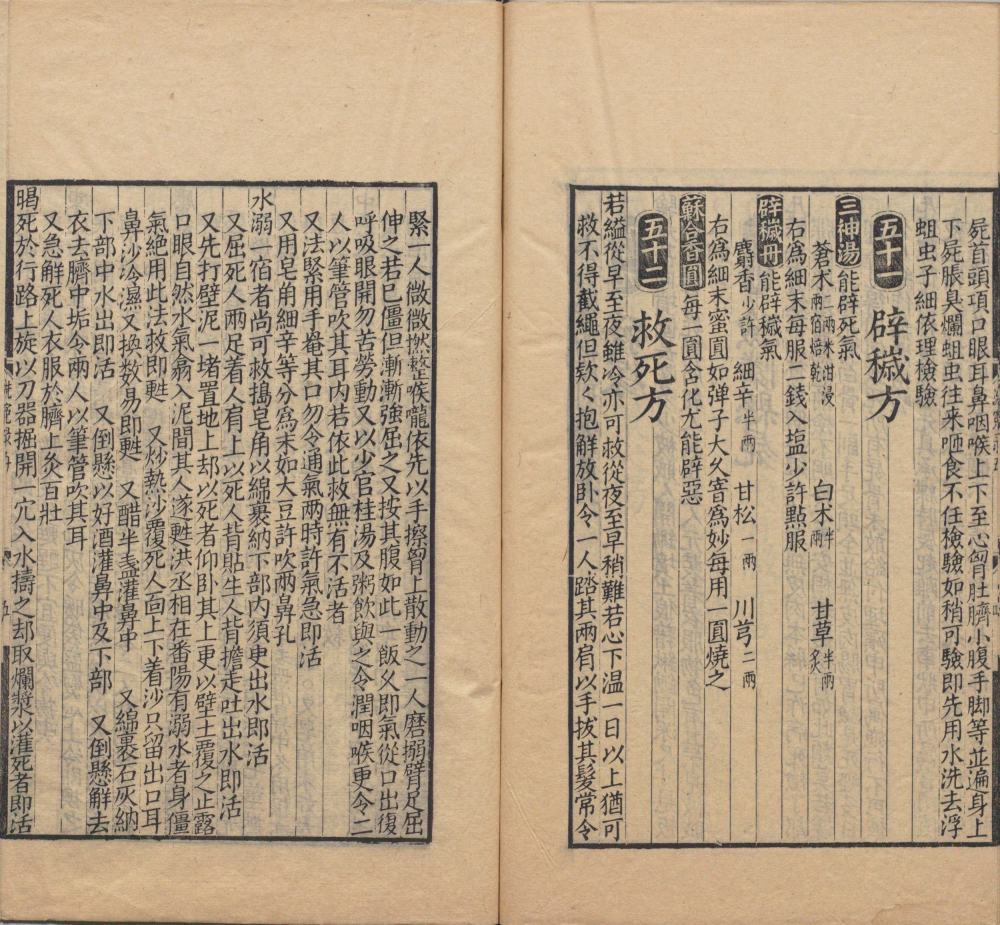 屍首頭項口眼耳鼻咽喉上下至心胷肚臍小腹手脚等並遍身上
下屍脹臭爛蛆虫往来咂食不任檢驗如稍可驗即先用水洗去浮
蛆虫子細依理檢驗
五十一　辟穢方
三神湯能辟死氣
蒼术二兩米泔浸兩宿焙乾　白术半兩　甘草半兩炙
右爲細末每服二錢入塩少許點服
辟穢丹能辟穢氣
麝香少許　細辛半兩　甘松一兩　川芎二兩
右爲細末蜜圓如弹子大久窨爲妙每用一圓燒之
蘇合香圓每一圓含化尤能辟惡
五十二　救死方
若縊從早至夜雖冷亦可救從夜至早稍難若心下温一日以上猶可
救不得截繩但欵々抱解放卧令一人踏其兩肩以手拔其髮常令
緊一人微微撚整喉嚨依先以手擦胷上散動之一人磨搦臂足屈
伸之若已僵但漸漸強屈之又按其腹如此一飯久即氣從口出復
呼吸眼開勿苦勞動又以少官桂湯及粥飲與之令潤咽喉更令二
人以筆管吹其耳内若依此救無有不活者
又法緊用手罨其口勿令通氣兩時許氣急即活
又用皂角細辛等分爲末如大豆許吹兩鼻孔
水溺一宿者尚可救搗皂角以綿裹納下部内須臾出水即活
又屈死人兩足着人肩上以死人背貼生人背擔走吐出水即活
又先打壁泥一堵置地上却以死者仰卧其上更以壁土覆之止露
口眼自然水氣翕入泥間其人遂甦洪丞相在番陽有溺水者身僵
氣絶用此法救即甦　又炒熱沙覆死人面上下着沙只留出口耳
鼻沙冷濕又換数易即甦　又醋半盞灌鼻中　又綿裹石灰納
下部中水出即活　又倒懸以好酒灌鼻中及下部　又倒懸解去
衣去臍中垢令兩人以筆管吹其耳
又急解死人衣服於臍上灸百壯
暍死於行路上旋以刀器掘開一穴入水擣之却取爛漿以灌死者即活